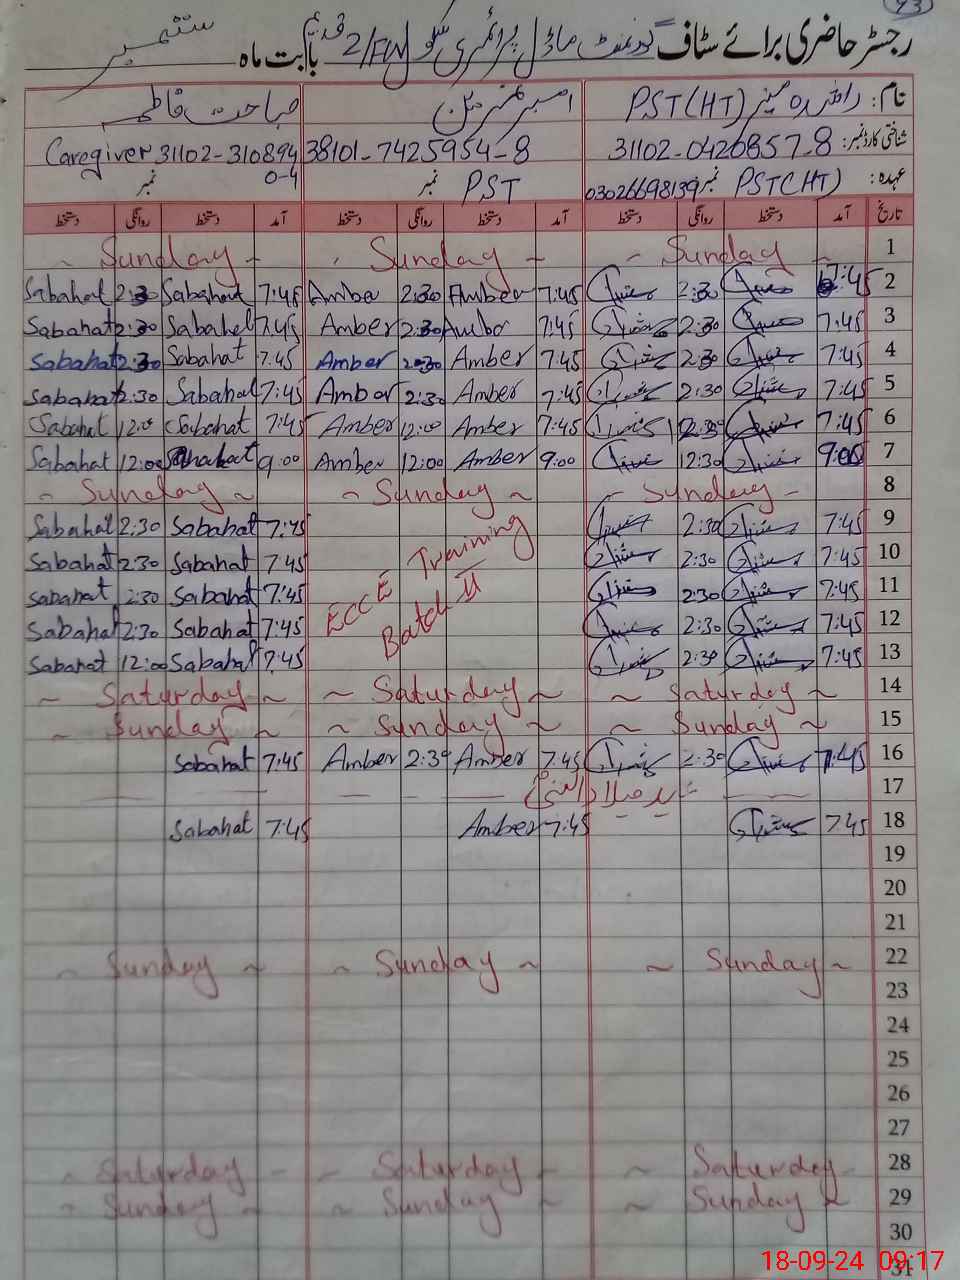 93
رجسٹر حاضری برائے سٹاف گورنمنٹ ماڈل پرائمری سکول 2/FW قدیم بابت ماہ ستمبر
نام: PST(HT) امبر صباحت فاطمہ
شناختی کارڈ نمبر: 31102-0426857-8 38101-7425954-8 Caregiver 31102-310894
0-4
عہدہ: PST(HT) نمبر 03026698139 PST نمبر نمبر
تاریخ آمد دستخط روانگی دستخط آمد دستخط روانگی دستخط آمد دستخط روانگی دستخط
1 ~ Sunday ~ ~ Sunday ~ ~ Sunday ~
2 7:45 2:30 7:45 Amber 2:30 Amber 7:45 Sabahat 2:30 Sabahat
3 7:45 2:30 7:45 Amber 2:30 Amber 7:45 Sabahat 2:30 Sabahat
4 7:45 2:30 7:45 Amber 2:30 Amber 7:45 Sabahat 2:30 Sabahat
5 7:45 2:30 7:45 Amber 2:30 Amber 7:45 Sabahat 2:30 Sabahat
6 7:45 12:30 7:45 Amber 12:00 Amber 7:45 Sabahat 12:00 Sabahat
7 9:00 12:30 9:00 Amber 12:00 Amber 9:00 Sabahat 12:00 Sabahat
8 ~ Sunday ~ ~ Sunday ~ ~ Sunday ~
9 7:45 2:30 7:45 Sabahat 2:30 Sabahat
10 7:45 2:30 ECCE Training 7:45 Sabahat 2:30 Sabahat
11 7:45 2:30 Batch II 7:45 Sabahat 2:30 Sabahat
12 7:45 2:30 7:45 Sabahat 2:30 Sabahat
13 7:45 2:30 7:45 Sabahat 12:00 Sabahat
14 ~ Saturday ~ ~ Saturday ~ ~ Saturday ~
15 ~ Sunday ~ ~ Sunday ~ ~ Sunday ~
16 7:45 2:30 7:45 Amber 2:30 Amber 7:45 Sabahat
17 عید میلاد النبیؐ
18 7:45 7:45 Amber 7:45 Sabahat
19
20
21
22 ~ Sunday ~ ~ Sunday ~ ~ Sunday ~
23
24
25
26
27
28 ~ Saturday ~ ~ Saturday ~ ~ Saturday ~
29 ~ Sunday ~ ~ Sunday ~ ~ Sunday ~
30
31
18-09-24 09:17